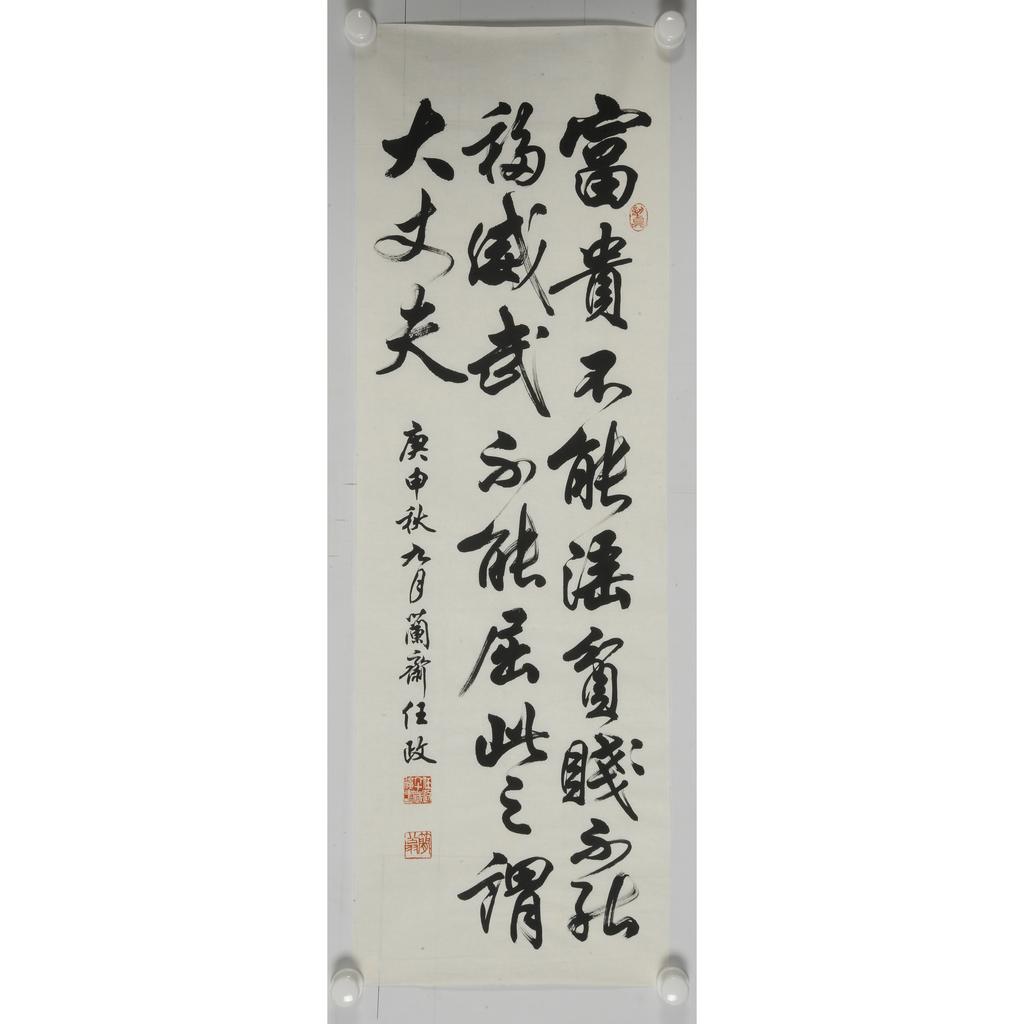 富貴不能淫貧賤不能
移威武不能屈此之謂
大丈夫
庚申秋九月蘭齋任政